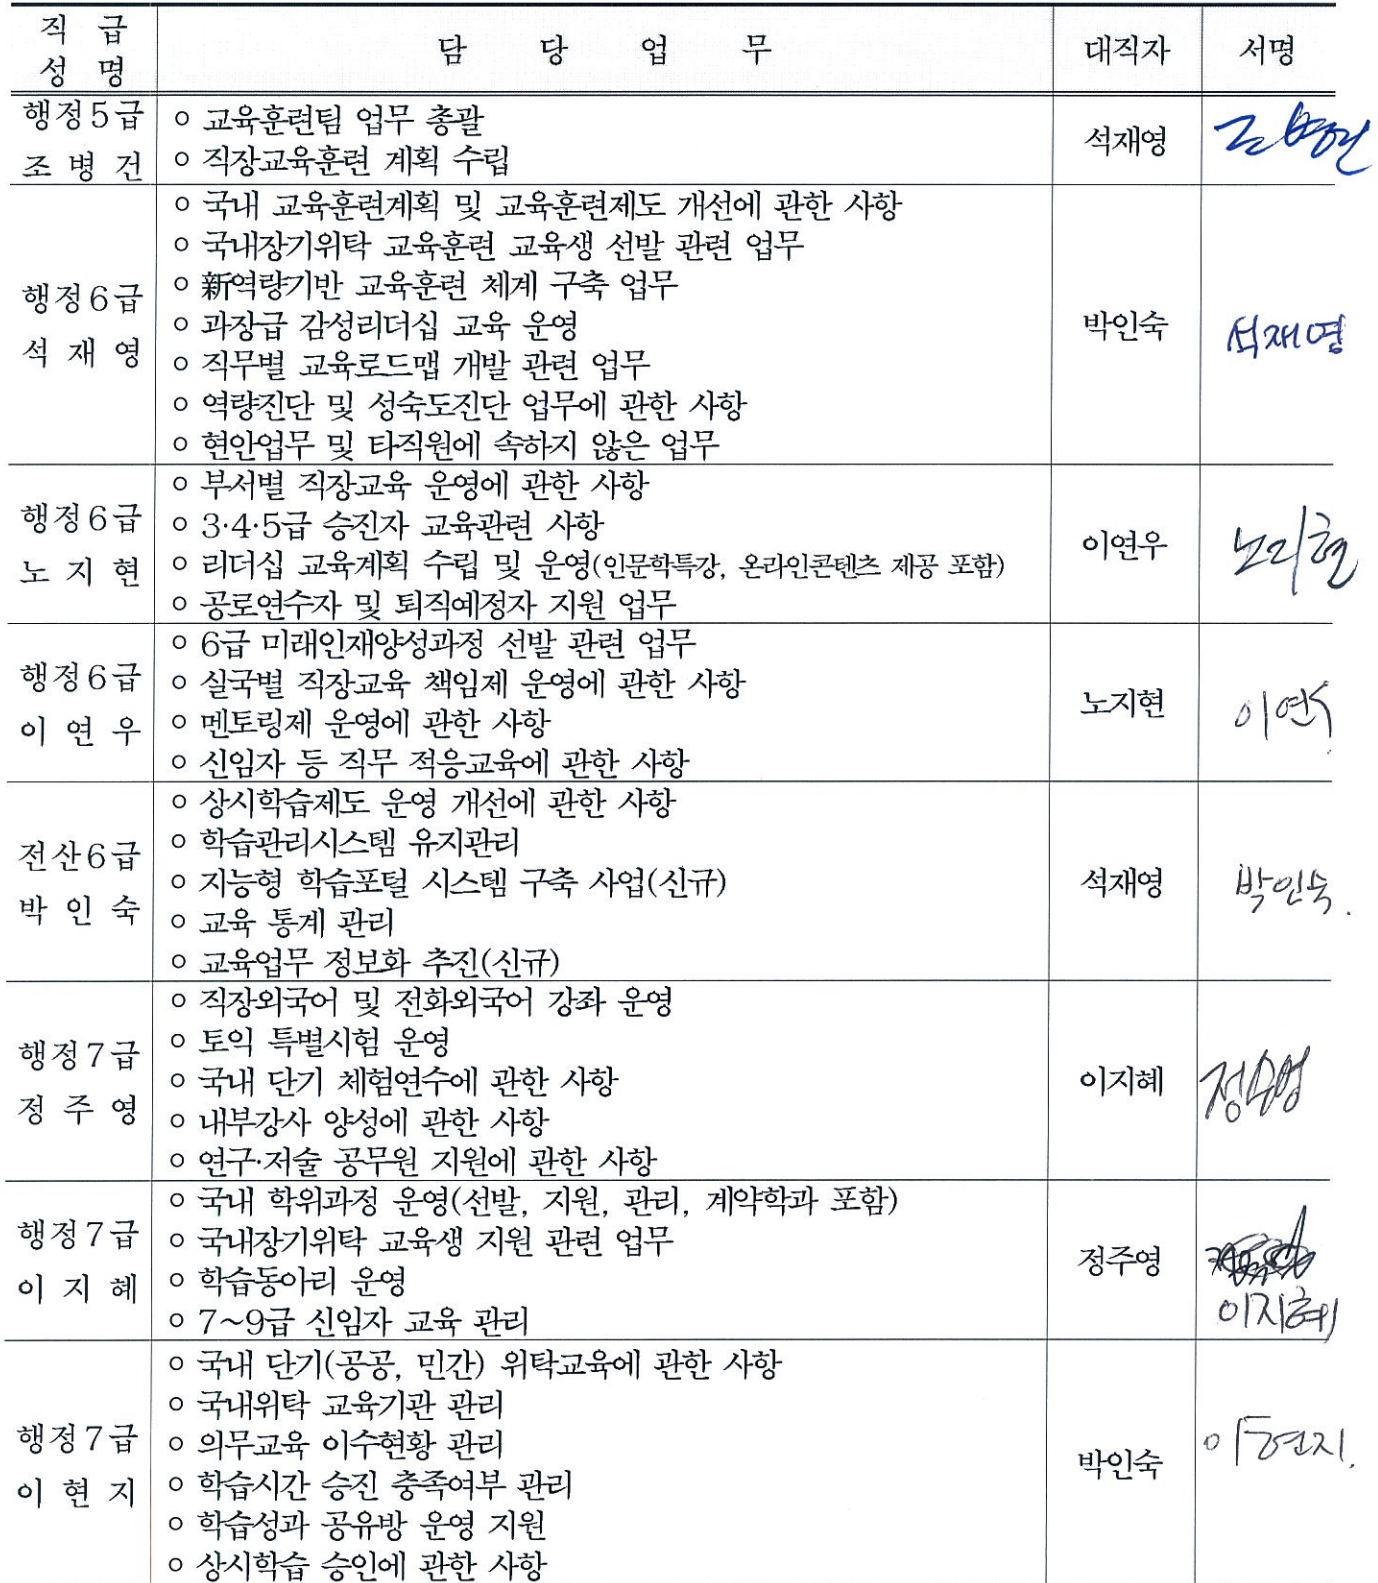 직 급
성 명
담 당 업 무
대직자
서명
행정5급
조 병 건
○ 교육훈련팀 업무 총괄
○ 직장교육훈련 계획 수립
석재영
행정6급
석 재 영
○ 국내 교육훈련계획 및 교육훈련제도 개선에 관한 사항
○ 국내장기위탁 교육훈련 교육생 선발 관련 업무
○ 新역량기반 교육훈련 체계 구축 업무
○ 과장급 감성리더십 교육 운영
○ 직무별 교육로드맵 개발 관련 업무
○ 역량진단 및 성숙도진단 업무에 관한 사항
○ 현안업무 및 타직원에 속하지 않은 업무
박인숙
석재영
행정6급
노 지 현
○ 부서별 직장교육 운영에 관한 사항
○ 3·4·5급 승진자 교육관련 사항
○ 리더십 교육계획 수립 및 운영(인문학특강, 온라인콘텐츠 제공 포함)
○ 공로연수자 및 퇴직예정자 지원 업무
이연우
노지현
행정6급
이 연 우
○ 6급 미래인재양성과정 선발 관련 업무
○ 실국별 직장교육 책임제 운영에 관한 사항
○ 멘토링제 운영에 관한 사항
○ 신임자 등 직무 적응교육에 관한 사항
노지현
이연우
전산6급
박 인 숙
○ 상시학습제도 운영 개선에 관한 사항
○ 학습관리시스템 유지관리
○ 지능형 학습포털 시스템 구축 사업(신규)
○ 교육 통계 관리
○ 교육업무 정보화 추진(신규)
석재영
박인숙.
행정7급
정 주 영
○ 직장외국어 및 전화외국어 강좌 운영
○ 토익 특별시험 운영
○ 국내 단기 체험연수에 관한 사항
○ 내부강사 양성에 관한 사항
○ 연구·저술 공무원 지원에 관한 사항
이지혜
정주영
행정7급
이 지 혜
○ 국내 학위과정 운영(선발, 지원, 관리, 계약학과 포함)
○ 국내장기위탁 교육생 지원 관련 업무
○ 학습동아리 운영
○ 7~9급 신임자 교육 관리
정주영
이지혜
행정7급
이 현 지
○ 국내 단기(공공, 민간) 위탁교육에 관한 사항
○ 국내위탁 교육기관 관리
○ 의무교육 이수현황 관리
○ 학습시간 승진 충족여부 관리
○ 학습성과 공유방 운영 지원
○ 상시학습 승인에 관한 사항
박인숙
이현지.